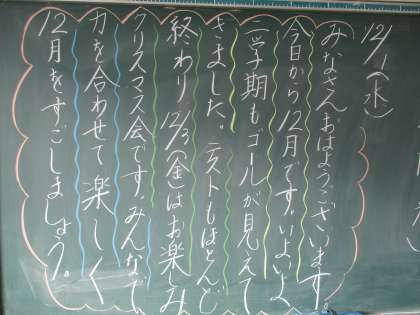 12/1(水)
みなさんおはようございます。
今日から12月です。いよいよ
二学期もゴールが見えて
きました。テストもほとんど
終わり 12/3(金)はお楽しみ
クリスマス会です みんなで
力を合わせて楽しく
12月をすごしましょう。